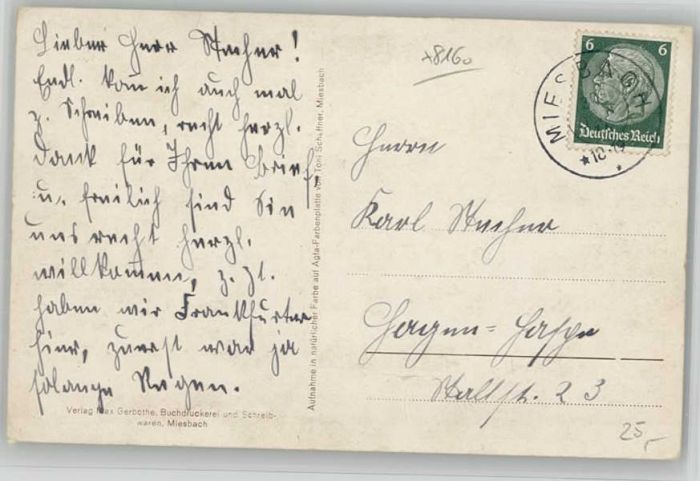 Lieber Herr Stecher!
Endl. kom ich auch mal
z. Schreiben, recht herzl.
Dank für Ihren Brief
u. freilich sind Sie
uns recht herzl.
willkommen, z. Zt.
haben wir Frankfurter
hier, zuerst war ja
solange Regen.
Verlag Max Gerbothe, Buchdruckerei und Schreib-
waren, Miesbach
Aufnahme in natürlicher Farbe auf Agfa-Farbenplatte von Toni Schaffner, Miesbach
x8160
6 6
Deutsches Reich
MIESBACH
Herrn
Karl Stecher
Hagen-Haspe
Str. 23
25,-